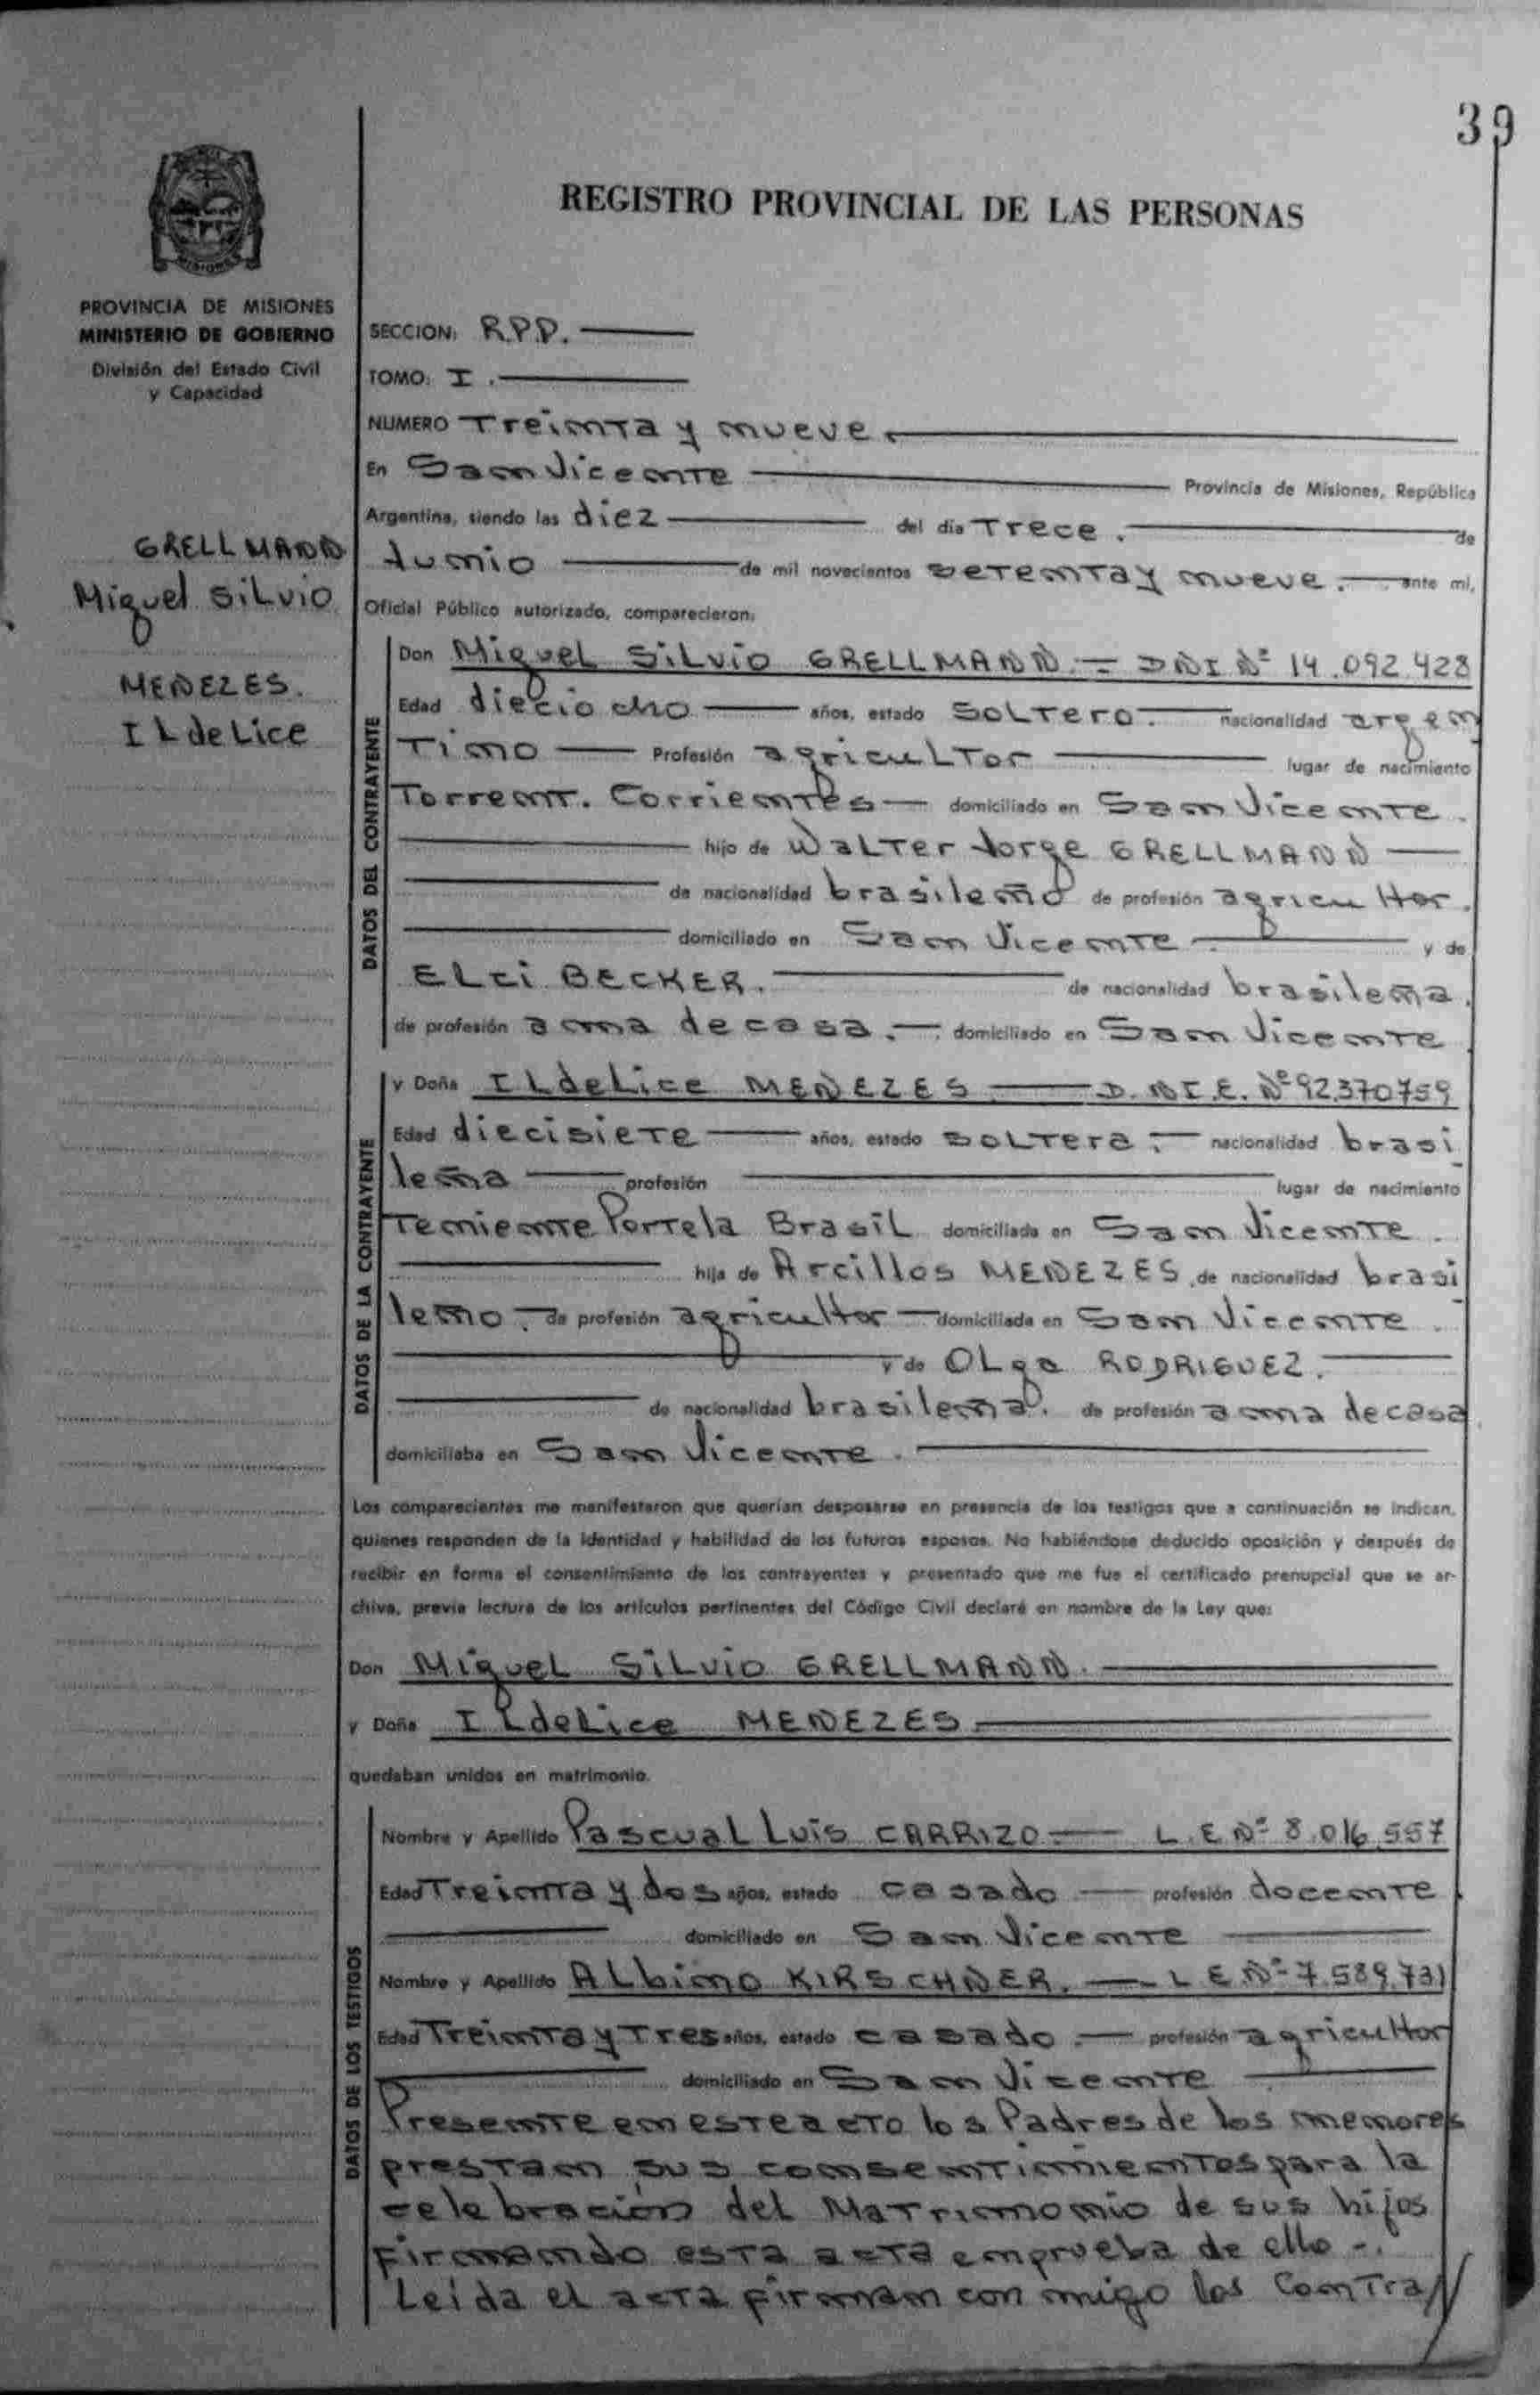 39
REGISTRO PROVINCIAL DE LAS PERSONAS
MISIONES
PROVINCIA DE MISIONES
MINISTERIO DE GOBIERNO
División del Estado Civil
y Capacidad
GRELLMANN
Miguel Silvio
MENEZES.
ILdeLice
SECCION: R.P.P.
TOMO: I.
NUMERO Treinta y nueve.
En San Vicente Provincia de Misiones, República
Argentina, siendo las diez del día Trece. de
Junio de mil novecientos setenta y nueve. ante mí,
Oficial Público autorizado, comparecieron:
DATOS DEL CONTRAYENTE
Don Miguel Silvio GRELLMANN.= DNI Nº 14.092.428
Edad dieciocho años, estado Soltero. nacionalidad argen
Tino Profesión agricultor lugar de nacimiento
Torrent. Corrientes domiciliado en San Vicente.
hijo de Walter Jorge GRELLMANN
de nacionalidad brasileño de profesión agricultor.
domiciliado en San Vicente. y de
ELci BECKER. de nacionalidad brasileña.
de profesión ama de casa. domiciliado en San Vicente
DATOS DE LA CONTRAYENTE
y Doña ILdeLice MENEZES D.NI.E. Nº 92.370759
Edad diecisiete años, estado soltera. nacionalidad brasi
leña profesión lugar de nacimiento
Teniente Portela Brasil domiciliada en San Vicente.
hija de Arcillos MENEZES, de nacionalidad brasi
leño. de profesión agricultor domiciliada en San Vicente.
y de OLga RODRIGUEZ.
de nacionalidad brasileña. de profesión ama de casa
domiciliaba en San Vicente.
Los comparecientes me manifestaron que querían desposarse en presencia de los testigos que a continuación se indican,
quienes responden de la identidad y habilidad de los futuros esposos. No habiéndose deducido oposición y después de
recibir en forma el consentimiento de los contrayentes y presentado que me fue el certificado prenupcial que se ar-
chiva, previa lectura de los artículos pertinentes del Código Civil declaré en nombre de la Ley que:
Don Miguel Silvio GRELLMANN.
y Doña ILdeLice MENEZES
quedaban unidos en matrimonio.
DATOS DE LOS TESTIGOS
Nombre y Apellido Pascual Luis CARRIZO.- L.E.Nº 8.016.557
Edad Treinta y dos años, estado casado profesión docente.
domiciliado en San Vicente
Nombre y Apellido Albino KIRSCHNER. L E Nº 7.589.731
Edad Treinta y Tres años, estado casado. profesión agricultor
domiciliado en San Vicente
Presente en este acto los Padres de los menores
prestan sus consentimientos para la
celebración del Matrimonio de sus hijos
firmando esta acta en prueba de ello -.
Leída el acta firman con migo los Contra//